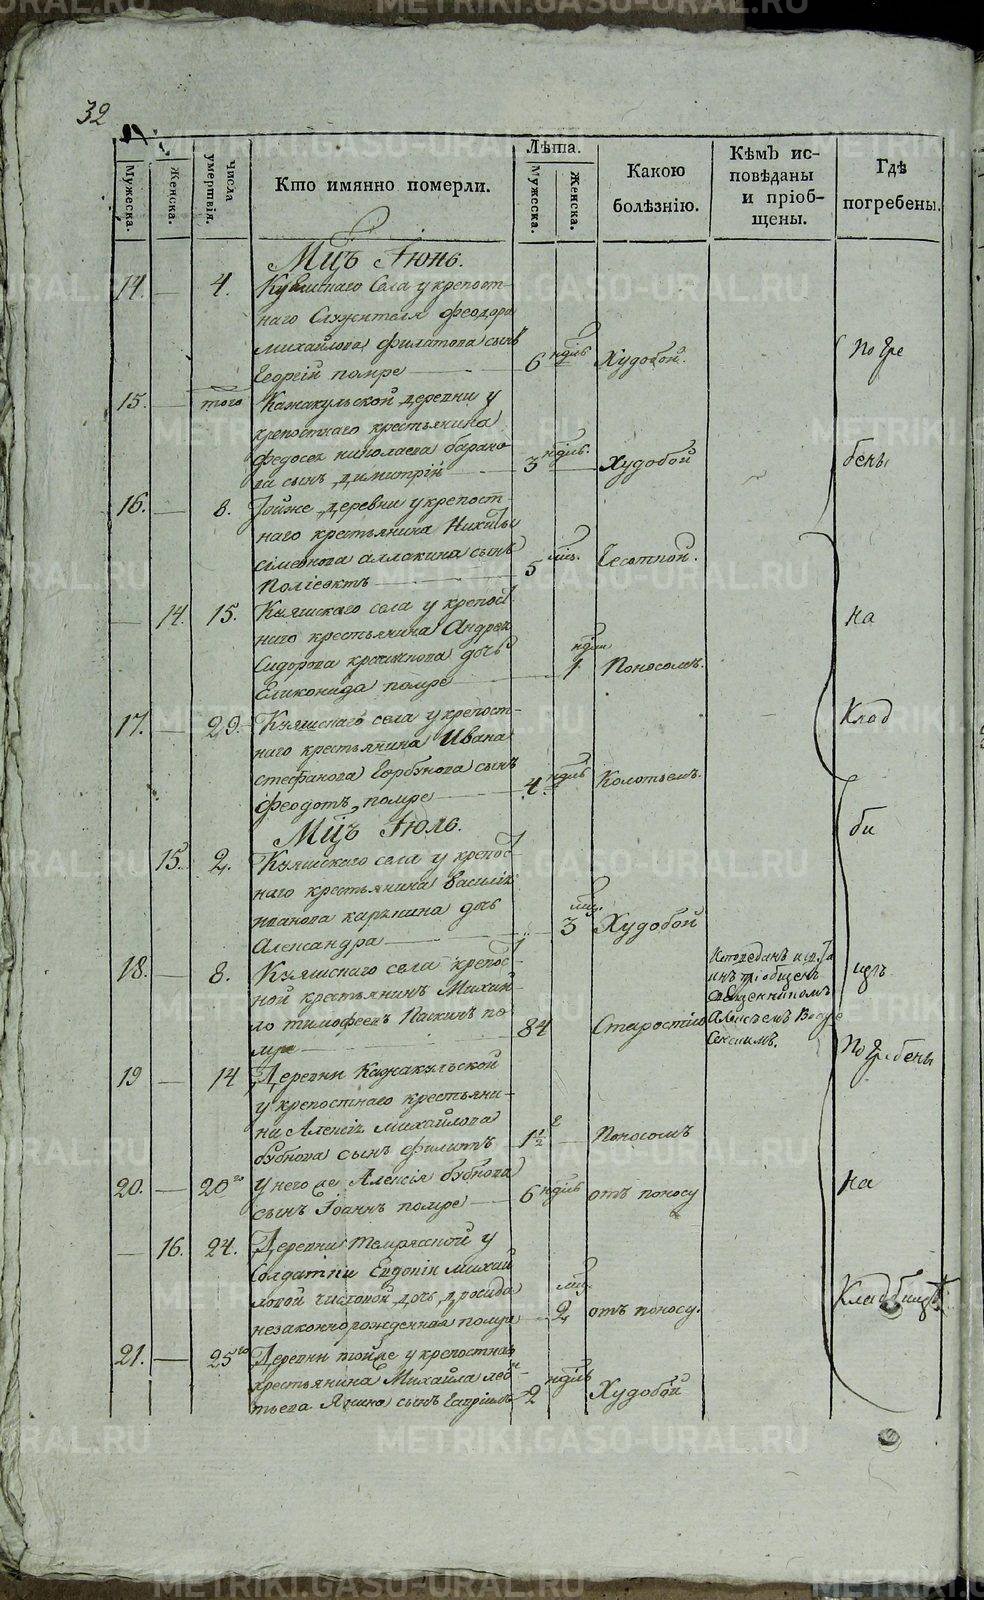 32
Мужеска.
Женска.
числа умертвія.
Кто имянно померли.
Лѣта.
Мужеска.
Женска.
Какою болѣзнію.
Кѣмъ исповѣданы и пріобщены.
Гдѣ погребены.
Мцъ Іюнь.
14. — 4. Куяшскаго Села у крепост-
наго Служителя Феодора
Михайлова Филатова сынъ
Георгій помре — 6 ндль Худобой.
15. — того Кажакульской деревни у
крепостнаго крестьянина
Федосея Николаева Барано-
ва сынъ Димитрій — 3 ндль. Худобой
16. — 8. Тойже деревни у крепост-
наго крестьянина Никиты
Сімеонова Аллакина сынъ
Поліевктъ — 5 мцъ. Чесоткой.
— 14. 15. Куяшскаго села у крепос
наго крестьянина Андрея
Сидорова дочь
Гликонида помре — 1 ндли Поносомъ.
17. — 29. Куяшскаго села у крепост-
наго крестьянина Ивана
Стефанова Горбунова сынъ
Феодотъ помре — 4 ндль Колотьемъ.
Мцъ Іюль.
15. 2. Куяшскаго села у крепос-
наго крестьянина Василія
Иванова Карпина дочь
Александра — 3 мцъ. Худобой
18. — 8. Куяшскаго села крепос-
ной крестьянинъ Михай-
ло Тимофеевъ Паскинъ по-
мре — 84 Старостію
Исповеданъ и
пріобщенъ
Священникомъ
Алексѣемъ
19 — 14 Деревни Кажакульской
у крепостнаго крестьяни-
на Алексія Михайлова
Бубнова сынъ Филипъ 1 1/2 — Поносомъ
20. — 20го у него же Алексія Бубнова
сынъ Іоаннъ помре — 6 ндль отъ поносу
— 16. 24. Деревни Темряской у
Солдатки Евдокіи Михай
ловой Чистовой дочь Дросида
незаконнорожденная помре — 2 мцъ. отъ поносу.
21. — 25го Деревни тойже у крепостнаго
крестьянина Михайла
сынъ Гавріилъ — 2 ндль Худобой
Погре
бены
на
Клад
би
щѣ
Погребены
на
Кладбищѣ.
METRIKI.GASO-URAL.RU